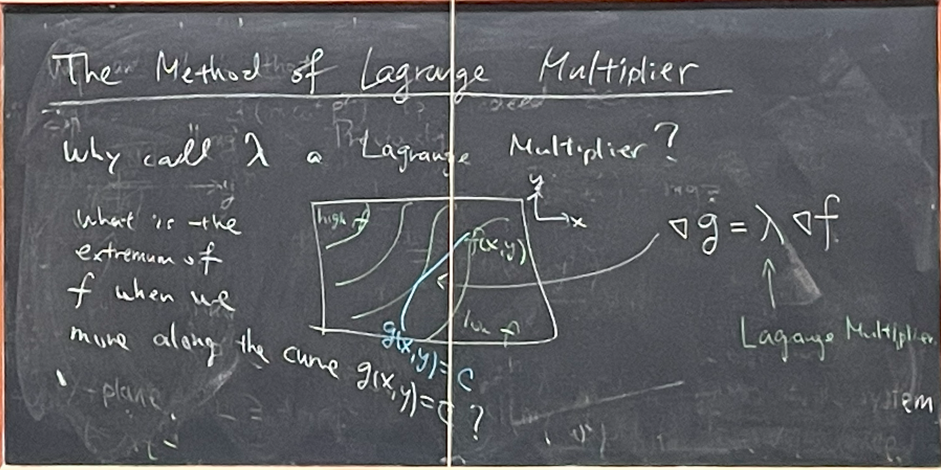 The Method of Lagrange Multiplier
Why call λ a Lagrange Multiplier?
What is the
extremum of
f when we
move along the curve g(x,y)=C ?
high f
f(x,y)
low f
g(x,y)=C
y
x
∇g=λ∇f
Lagange Multiplier
-plane
em